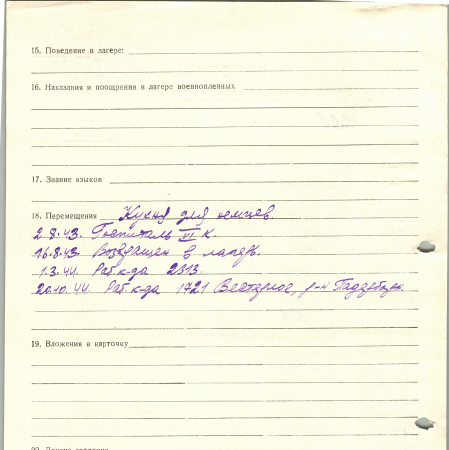 15. Поведение в лагере:
16. Наказания и поощрения в лагере военнопленных
17. Знание языков
18. Перемещения Кухня для немцев
2.8.43. Госпиталь VI К.
16.8.43. Возвращен в лагерь.
1.3.44. Раб к-да 2313
20.10.44. Раб к-да 1721 р-н
19. Вложения в карточку